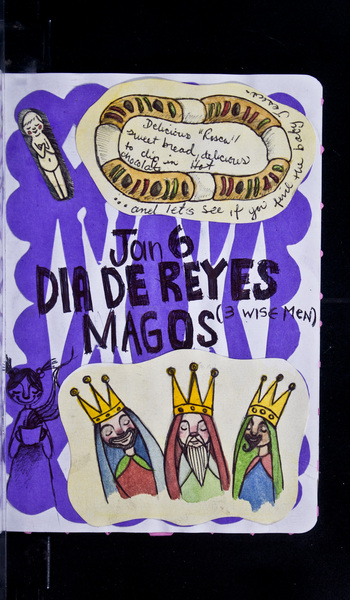 Delicious "Rosca"!
sweet bread delicious
to dip in Hot
chocolate
...and let's see if you find the baby
Jan 6
DIA DE REYES
MAGOS
(3 WISE MEN)